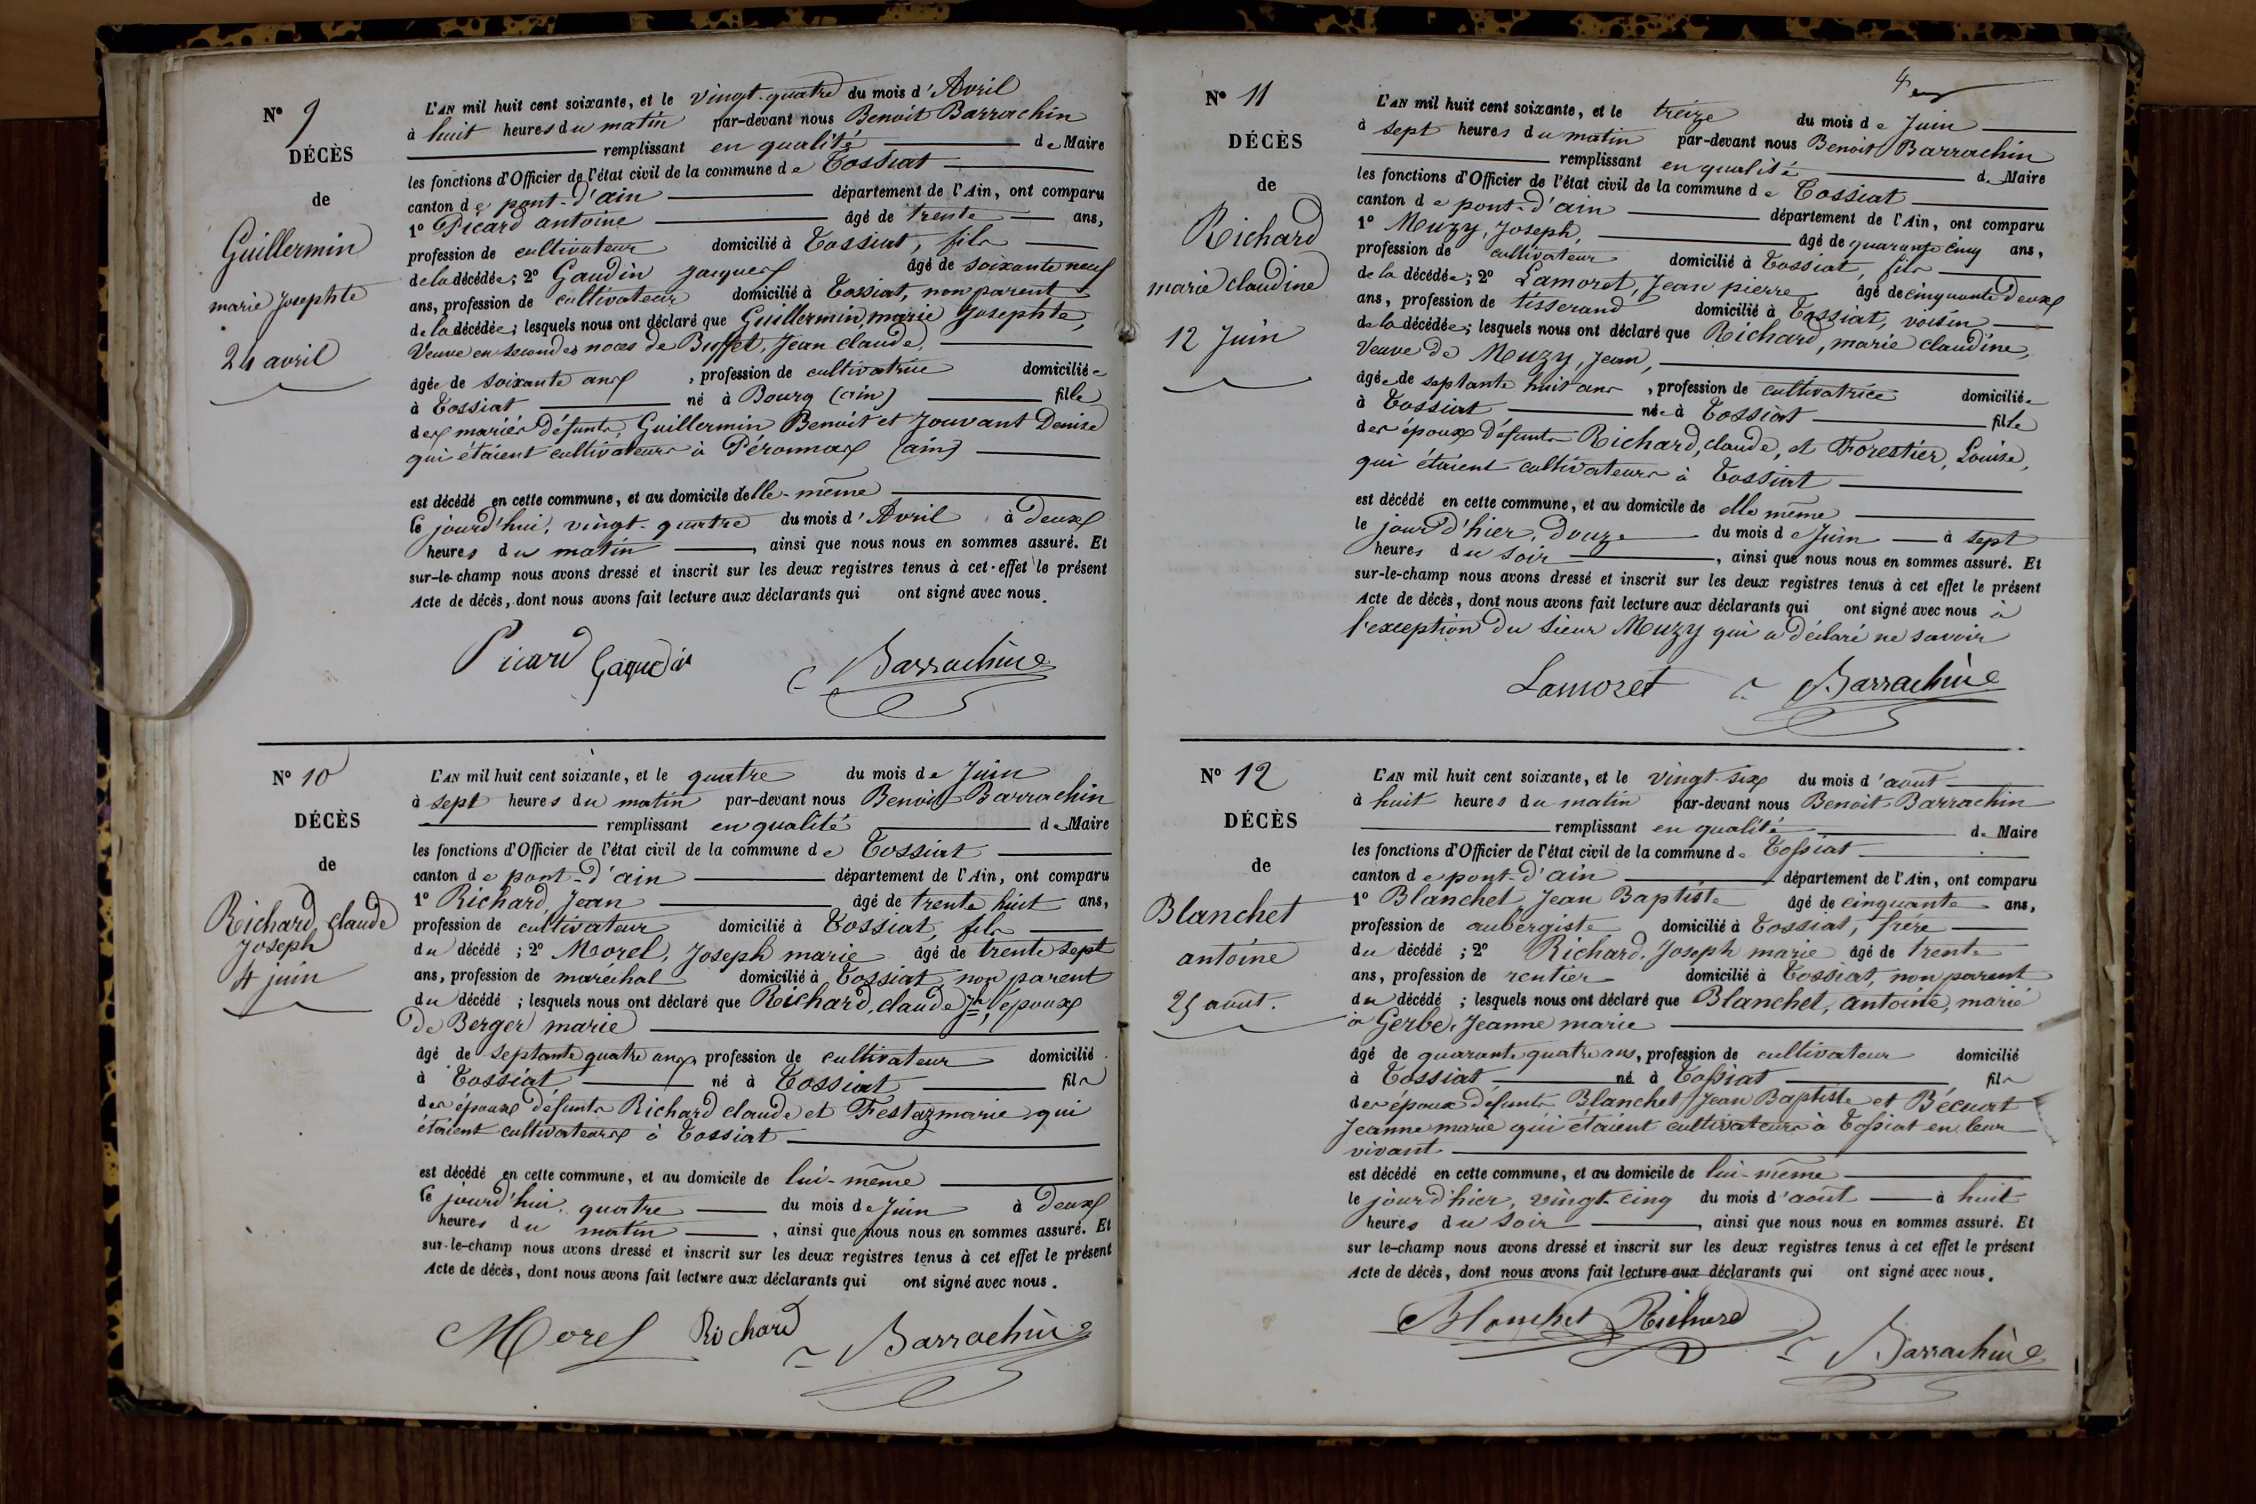 N° 9
DÉCÈS
de
Guillermin
marie Josephte
24 avril
L'AN mil huit cent soixante, et le vingt-quatre du mois d'Avril
à huit heures du matin par-devant nous Benoit Barrachin
remplissant en qualité de Maire
les fonctions d'Officier de l'état civil de la commune de Tossiat
canton de pont-d'ain département de l'Ain, ont comparu
1° Picard antoine âgé de trente ans,
profession de cultivateur domicilié à Tossiat, fils
de la décédée; 2° Gaudin Jacques âgé de soixante neuf
ans, profession de cultivateur domicilié à Tossiat, non parent
de la décédée; lesquels nous ont déclaré que Guillermin, marie Josephte,
Veuve en secondes noces de Buffet, Jean claude,
âgée de soixante ans, profession de cultivatrice domiciliée
à Tossiat né à Bourg (ain) fille
des mariés défunts, Guillermin Benoit et Jouvant Denise
qui étaient cultivateurs à Péronnas (ain)
est décédé en cette commune, et au domicile d'elle-même
le jourd'hui, vingt-quatre du mois d'Avril à deux
heures du matin, ainsi que nous nous en sommes assuré. Et
sur-le-champ nous avons dressé et inscrit sur les deux registres tenus à cet effet le présent
Acte de décès, dont nous avons fait lecture aux déclarants qui ont signé avec nous.
Picard Barrachin
N° 10
DÉCÈS
de
Richard claude
Joseph
4 juin
L'AN mil huit cent soixante, et le quatre du mois de Juin
à sept heures du matin par-devant nous Benoit Barrachin
remplissant en qualité de Maire
les fonctions d'Officier de l'état civil de la commune de Tossiat
canton de pont-d'ain département de l'Ain, ont comparu
1° Richard, Jean âgé de trente huit ans,
profession de cultivateur domicilié à Tossiat, fils
du décédé; 2° Morel, Joseph marie âgé de trente sept
ans, profession de maréchal domicilié à Tossiat, non parent
du décédé; lesquels nous ont déclaré que Richard, claude Jh, époux
De Berger marie
âgé de septante quatre ans, profession de cultivateur domicilié
à Tossiat né à Tossiat fils
des époux défunts Richard claude et Festaz marie qui
étaient cultivateurs à Tossiat
est décédé en cette commune, et au domicile de lui-même
le jourd'hui, quatre du mois de Juin à deux
heures du matin, ainsi que nous nous en sommes assuré. Et
sur-le-champ nous avons dressé et inscrit sur les deux registres tenus à cet effet le présent
Acte de décès, dont nous avons fait lecture aux déclarants qui ont signé avec nous.
Morel Richard Barrachin
N° 11
DÉCÈS
de
Richard
marie claudine
12 Juin
L'AN mil huit cent soixante, et le treize du mois de Juin
à sept heures du matin par-devant nous Benoit Barrachin
remplissant en qualité de Maire
les fonctions d'Officier de l'état civil de la commune de Tossiat
canton de pont-d'ain département de l'Ain, ont comparu
1° Muzy, Joseph, âgé de quarante cinq ans,
profession de cultivateur domicilié à Tossiat, fils
de la décédée; 2° Lamoret, Jean pierre âgé de cinquante Deux
ans, profession de tisserand domicilié à Tossiat, voisin
de la décédée; lesquels nous ont déclaré que Richard, marie claudine,
Veuve de Muzy, Jean,
âgée de septante huit ans, profession de cultivatrice domiciliée
à Tossiat née à Tossiat fille
des époux défunts Richard, claude, et Forestier, Louise,
qui étaient cultivateurs à Tossiat
est décédé en cette commune, et au domicile de elle même
le jourd'hier, Douze du mois de Juin à sept
heures du soir, ainsi que nous nous en sommes assuré. Et
sur-le-champ nous avons dressé et inscrit sur les deux registres tenus à cet effet le présent
Acte de décès, dont nous avons fait lecture aux déclarants qui ont signé avec nous à
l'exception du sieur Muzy qui a déclaré ne savoir
Lamoret Barrachin
N° 12
DÉCÈS
de
Blanchet
antoine
25 août.
L'AN mil huit cent soixante, et le vingt-six du mois d'août
à huit heures du matin par-devant nous Benoit Barrachin
remplissant en qualité de Maire
les fonctions d'Officier de l'état civil de la commune de Tossiat
canton de pont-d'ain département de l'Ain, ont comparu
1° Blanchet, Jean Baptiste âgé de cinquante ans,
profession de aubergiste domicilié à Tossiat, frère
du décédé; 2° Richard, Joseph marie âgé de trente
ans, profession de rentier domicilié à Tossiat, non parent
du décédé; lesquels nous ont déclaré que Blanchet, antoine, marié
à Gerbe, Jeanne marie
âgé de quarante quatre ans, profession de cultivateur domicilié
à Tossiat né à Tossiat fils
des époux défunts Blanchet Jean Baptiste et Bécuat
Jeanne marie qui étaient cultivateurs à Tossiat en leur
vivant
est décédé en cette commune, et au domicile de lui-même
le jourd'hier, vingt-cinq du mois d'août à huit
heures du soir, ainsi que nous nous en sommes assuré. Et
sur le-champ nous avons dressé et inscrit sur les deux registres tenus à cet effet le présent
Acte de décès, dont nous avons fait lecture aux déclarants qui ont signé avec nous.
Blanchet Richard Barrachin